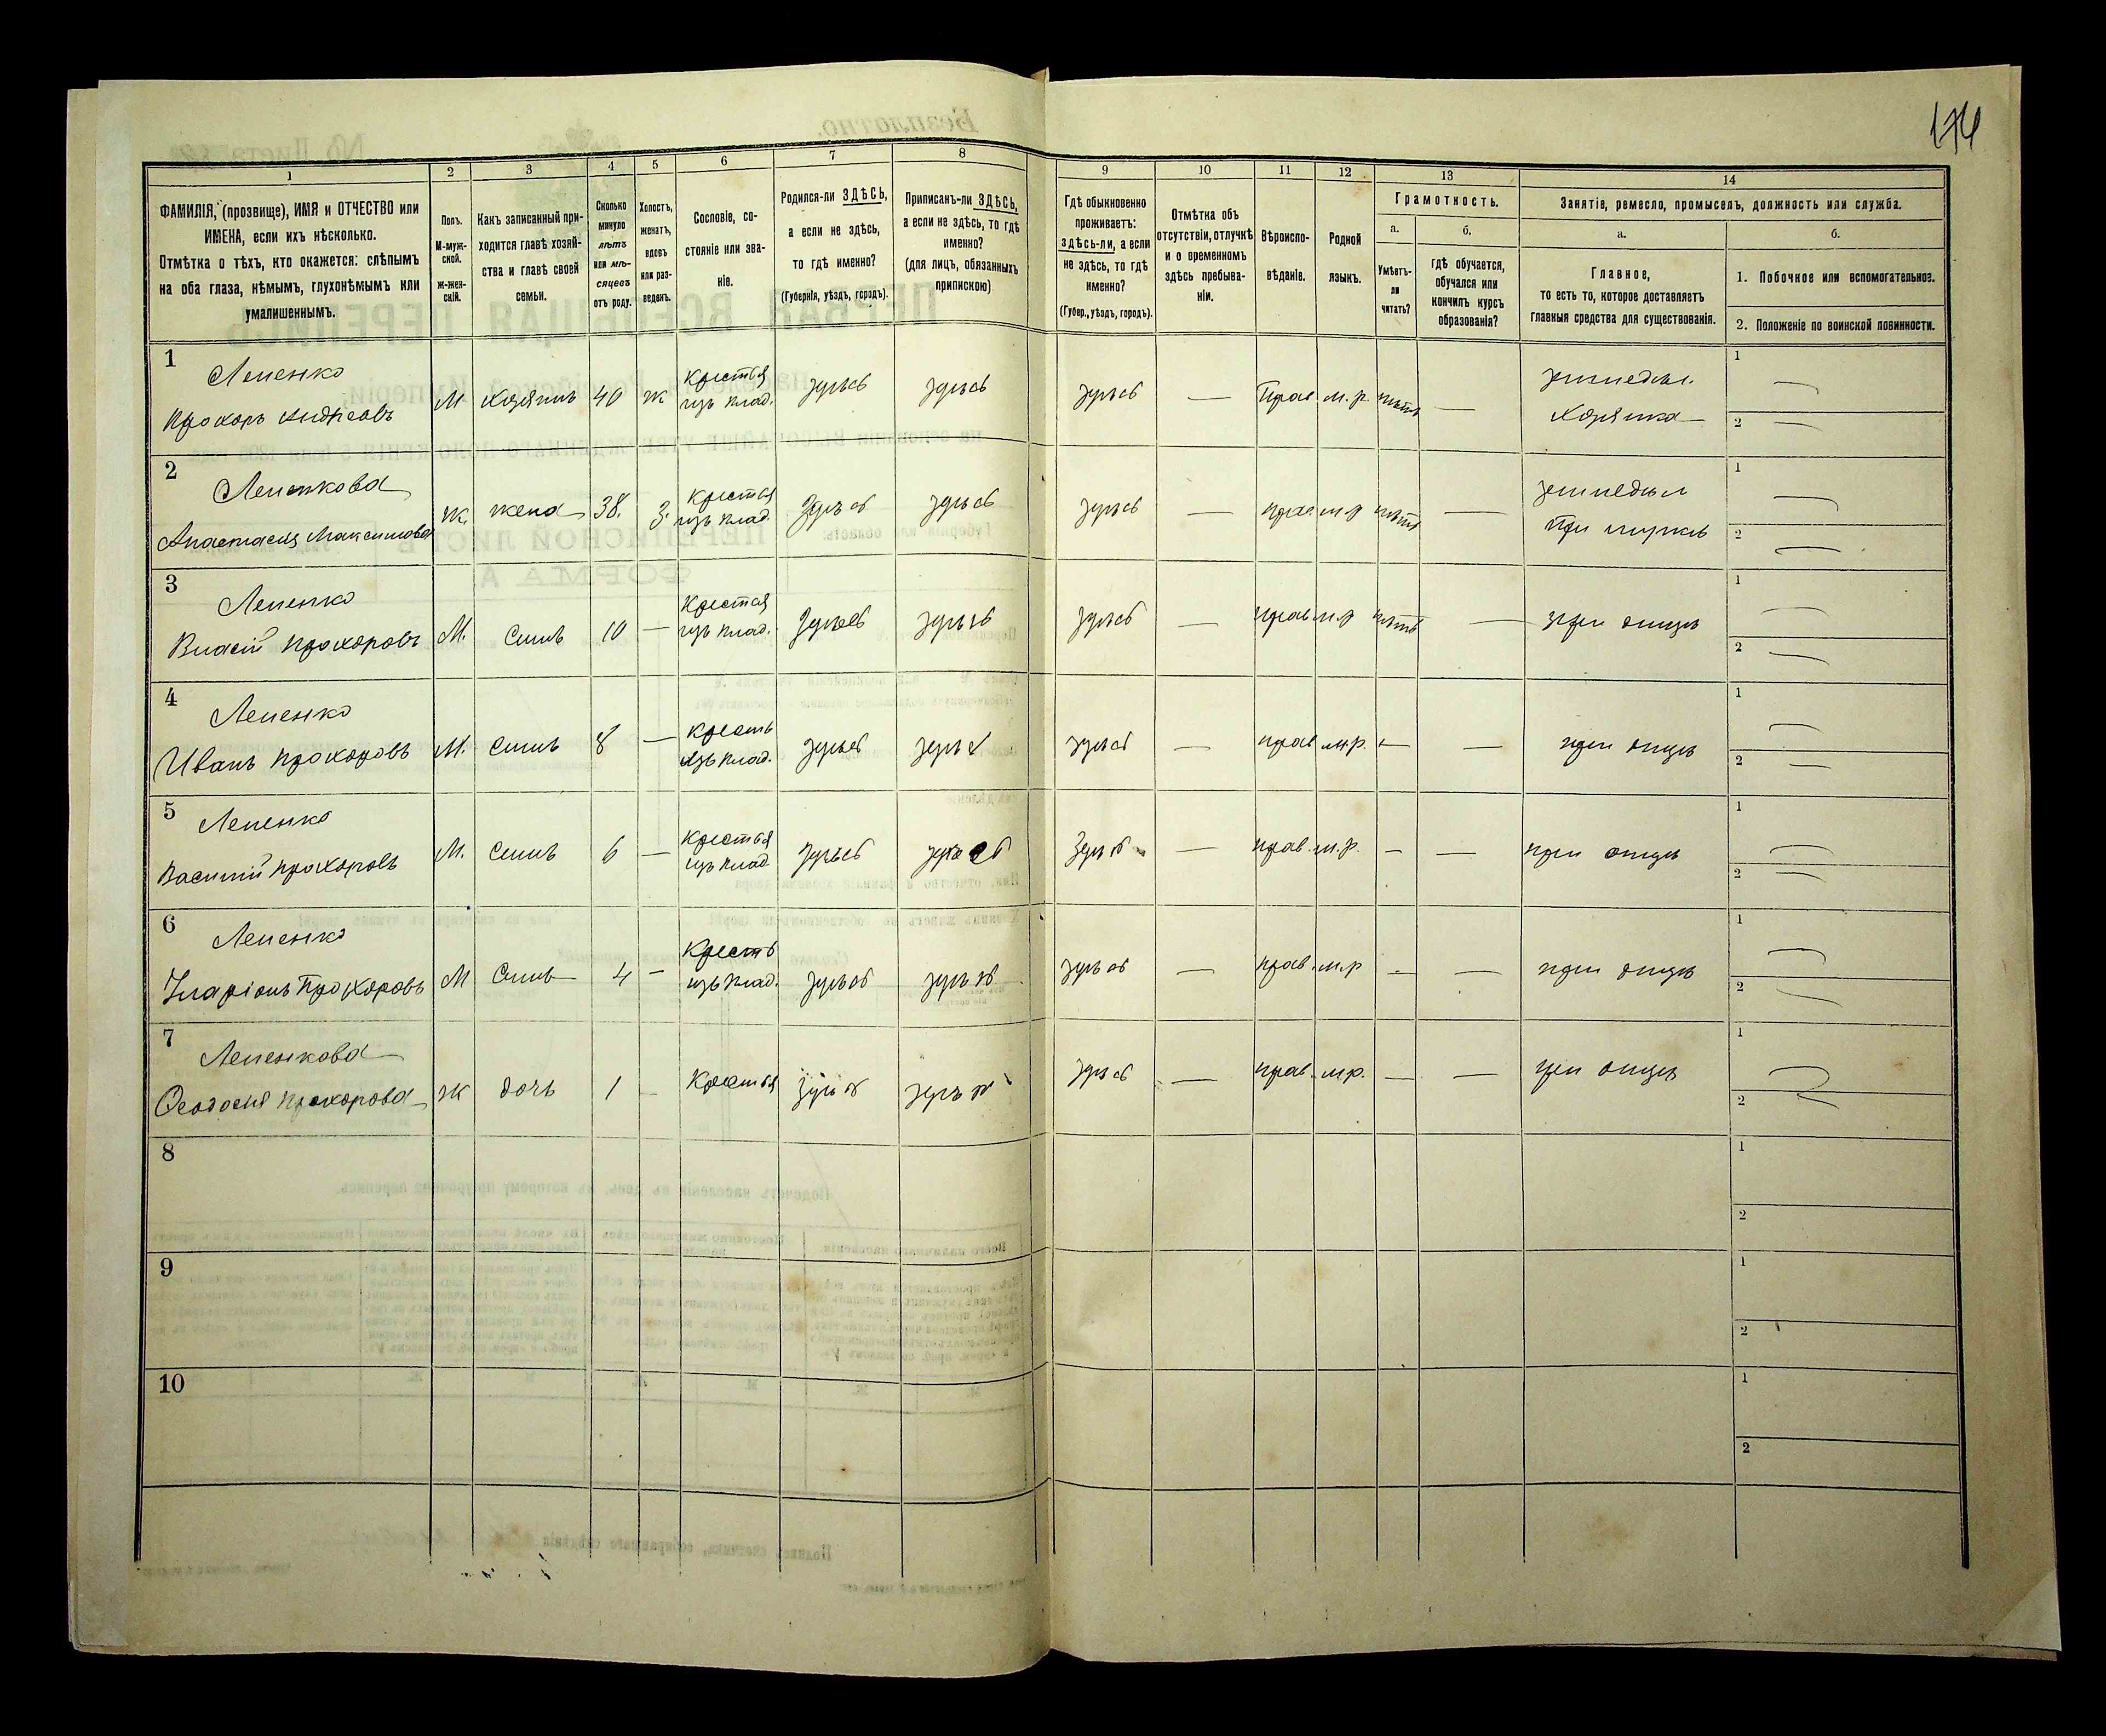 174
1 2 3 4 5 6 7 8 9 10 11 12 13 14
ФАМИЛІЯ, (прозвище), ИМЯ и ОТЧЕСТВО или
ИМЕНА, если ихъ нѣсколько.
Отмѣтка о тѣхъ, кто окажется: слѣпымъ
на оба глаза, нѣмымъ, глухонѣмымъ или
умалишеннымъ.
Полъ.
М-муж-
ской.
Ж-жен-
скій.
Какъ записанный при-
ходится главѣ хозяй-
ства и главѣ своей
семьи.
Сколько
минуло
лѣтъ
или мѣ-
сяцевъ
отъ роду.
Холостъ,
женатъ,
вдовъ
или раз-
веденъ.
Сословіе, со-
стояніе или зва-
ніе.
Родился-ли ЗДѢСЬ,
а если не здѣсь,
то гдѣ именно?
(Губернія, уѣздъ, городъ).
Приписанъ-ли ЗДѢСЬ,
а если не здѣсь, то гдѣ
именно?
(для лицъ, обязанныхъ
припиской)
Гдѣ обыкновенно
проживаетъ:
здѣсь-ли, а если
не здѣсь, то гдѣ
именно?
(Губер., уѣздъ, городъ).
Отмѣтка объ
отсутствіи, отлучкѣ
и о временномъ
здѣсь пребыва-
ніи.
Вѣроиспо-
вѣданіе.
Родной
языкъ.
Грамотность.
а.
Умѣетъ-
ли
читать?
б.
гдѣ обучается,
обучался или
кончилъ курсъ
образованія?
Занятіе, ремесло, промыселъ, должность или служба.
а.
Главное,
то есть то, которое доставляетъ
главныя средства для существованія.
б.
1. Побочное или вспомогательное.
2. Положеніе по воинской повинности.
1 Лепенко
Прохоръ Андреевъ М. хозяинъ 40 ж Крестья изъ влад. здѣсь здѣсь здѣсь — Прав. м.р. нѣтъ — земледѣл. Хозяинъ 1 — 2 —
2 Лепенкова
Анастасія Максимова Ж. жена 38. З. Крестья изъ влад. здѣсь здѣсь здѣсь — прав. м.р нѣтъ — земледѣл при мужѣ 1 — 2 —
3 Лепенко
Власій Прохоровъ М. Сынъ 10 — Крестья изъ влад. здѣсь здѣсь здѣсь — прав м.р нѣтъ — при отцѣ 1 — 2 —
4 Лепенко
Иванъ Прохоровъ М. Сынъ 8 — Кресть изъ влад. здѣсь здѣсь здѣсь — прав м.р. — — при отцѣ 1 — 2 —
5 Лепенко
Василій Прохоровъ М. Сынъ 6 — Крестья изъ влад здѣсь здѣсь здѣсь — прав. м.р. — — при отцѣ 1 — 2 —
6 Лепенко
Иларіонъ Прохоровъ М Сынъ 4 — Кресть изъ влад. здѣсь здѣсь здѣсь — прав. м.р — — при отцѣ 1 — 2 —
7 Лепенкова
Ѳеодосія Прохорова Ж дочь 1 — Крестья здѣсь здѣсь здѣсь — прав. м.р. — — при отцѣ 1 — 2 —
8 1 2
9 1 2
10 1 2